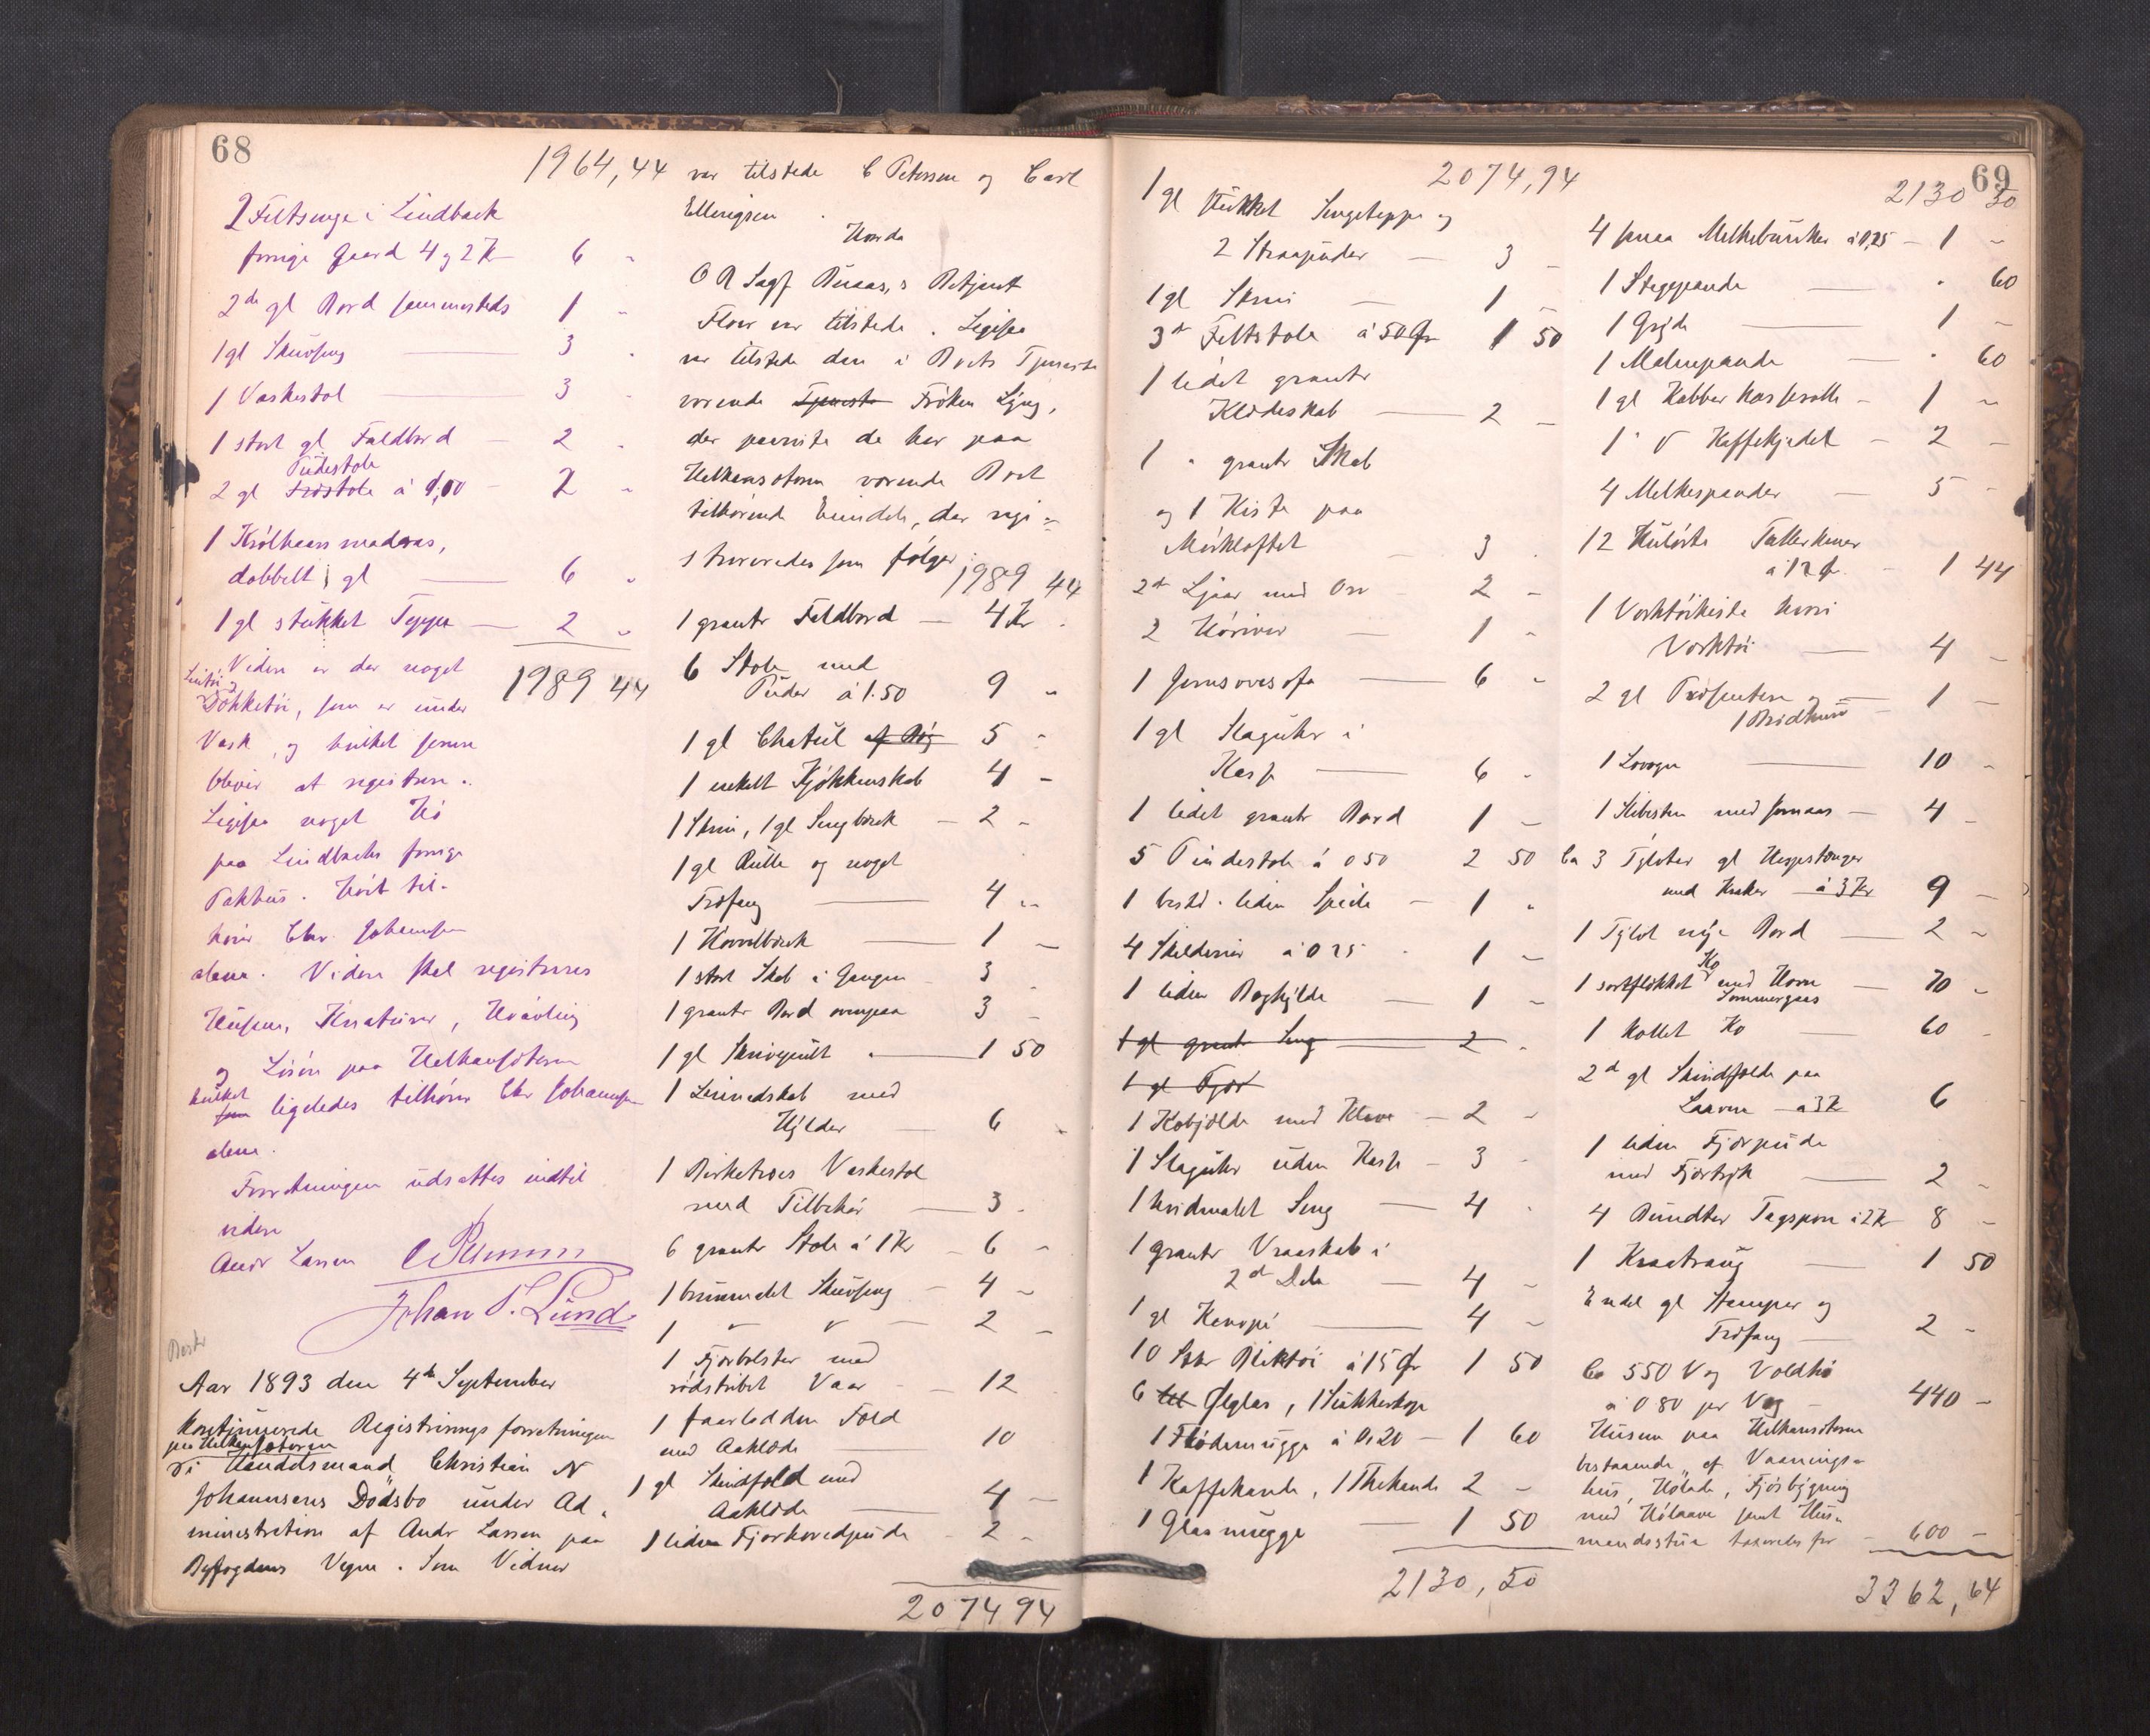 68
1964,44
2 Feltsenge i Lindbæk
forrige Gaard 4 og 2 Kr 6 "
2de gl Bord sammesteds 1 "
1 gl Skuvseng 3 "
1 Vaskestol 3 "
1 stort gl. Faldbord 2 "
Pudestole
2 gl Træstole à 1,00 2 "
1 Krølhaarsmadras,
dobbelt, gl 6 "
1 gl stukket Teppe 2 "
1989 44
Videre er der noget
Lintøi og
Dækketøi, som er under
Vask, og hvilket senere
bliver at registrere.
Ligesaa noget Hø
paa Lindbæks forrige
Pakhus. Høit til-
hører Chr. Johannsen
alene. Videre skal registreres
Husene, Kreaturer, Hvåvling
og Løsøre paa Helkansæteren
hvilket
som ligeledes tilhører Chr Johannsen
alene.
Forretningen udsættes indtil
videre
Andr Larsen
Johan P. Lund
Aar 1893 den 4de September
kontinuerede Registreringsforretningen
paa Helkansæteren
i Handelsmand Christian N
Johannsens Dödsbo under Ad-
ministration af Andr Larsen paa
Byfogdens Vegne. Som Vidner
var tilstede C Petersen og Carl
Ellingsen.
O A Sagf Buaas,s Betjent
Flor var tilstede. Ligesaa
var tilstede den i Boets Tjeneste
værende Tjeneste Frøken Lyng,
der paaviste de her paa
Helkansæteren værende Boet
tilhørende Eiendele, der regi-
streredes som følger
1989 44
1 graat Faldbord 4 Kr.
6 Stole med
Puder à 1.50 9 "
1 gl Chatul 5 "
1 enkelt Kjøkkenskab 4 -
1 Skrin, 1 gl Sengbænk 2 -
1 gl Rulle og noget
Træfang 4 "
1 Hovelbænk 1 -
1 stort Skab i Gangen 3 -
1 graat Bord ovenpaa 3 -
1 gl Skrivepult 1 50
1 Linnedskab med
Hylder 6 -
1 Birketræes Vaskestol
med Tilbehør 3 -
6 graat Stole à 1 Kr 6 -
1 brunmalet Skuvseng 4 -
1 " " 2 -
1 Fjærbolster med
rødstribet Vaar 12
1 faarladden Fæld
med Aaklæde 10
1 gl Skindfæld med
Aaklæde 4 -
1 liden Fjærhovedpude 2 -
2074 94
69
2074,94
1 gl stukket Sengeteppe og
2 Straapuder 3 -
1 gl Skrin 1 -
3de Feltstole à 50 Øre 1 50
1 lidet graat
Klædeskab 2 -
1 " graat Skab
og 1 Kiste paa
Mørkloftet 3 -
2de Ljaar med Orv 2 -
2 Høriver 1 -
1 Jernsovesofa 6 -
1 gl Slaguhr i
Kasse 6 -
1 lidet graat Bord 1 -
5 Pindestole à 0 50 2 50
1 beskd. liden Speile 1 "
4 Skilderier à 0 25 1 -
1 liden Boghylde 1 -
1 gl graat Seng 2 -
1 gl Fjær
1 Kobjelde med Klave 2 -
1 Slaguhr uden Kasse 3 -
1 hvidmalet Seng 4 -
1 graat Vraaskab i
2de Dele 4 -
1 gl Kanape 4 -
10 Stkr Bliktøi à 15 Øre 1 50
6 Ølglas, 1 Sukkerkop
1 Flødemugge à 0,20 1 60
1 Kaffekande, 1 Thekande 2 -
1 Glasmugge 1 50
2130,50
2130 50
4 smaa Melkebunker à 0,25 1 -
1 Stegepande " 60
1 Gryde 1 -
1 Malmpande " 60
1 gl Kobber Kasserolle 1 -
1 " Kaffekjedel 2 -
4 Melkespander 5 -
12 Kulørte Tallerkener
à 12 Ø. 1 44
1 Verktøikiste hvori
Verktøi 4 -
2 gl Træfenter og 1 -
1 Lovogn 10 -
1 Slibesten med Jernaas 4 -
Ca 3 Tylvter gl Hesjestænger
med Kraker à 3 Kr 9 -
1 Tylvt nye Bord 2 -
Ko
1 sortflekket med Horn 70 -
Sommergaas
1 kollet Ko 60 -
2de gl Skindfelde paa
Laaven à 3 Kr 6
1 liden Fjærpude
med Fjærtryk 2 -
4 Bundter Tagspon à 2 Kr 8 -
1 Kraatraug 1 50
Endel gl Stamper og
Træfang 2 -
Ca 550 Vog Voldhø
à 0 80 per Vog 440 -
Husene paa Helkansæteren
bestaaende af Vaanings-
hus, Hølade, Fjøsbygning
med Hølaave samt Hus-
mandsstue taxeredes for 600 -
3362,64